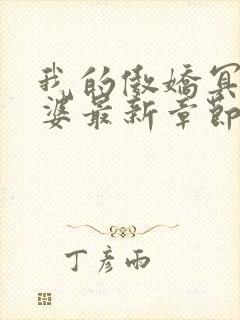 我的傲娇冥
婆最新章節
丁彦雨